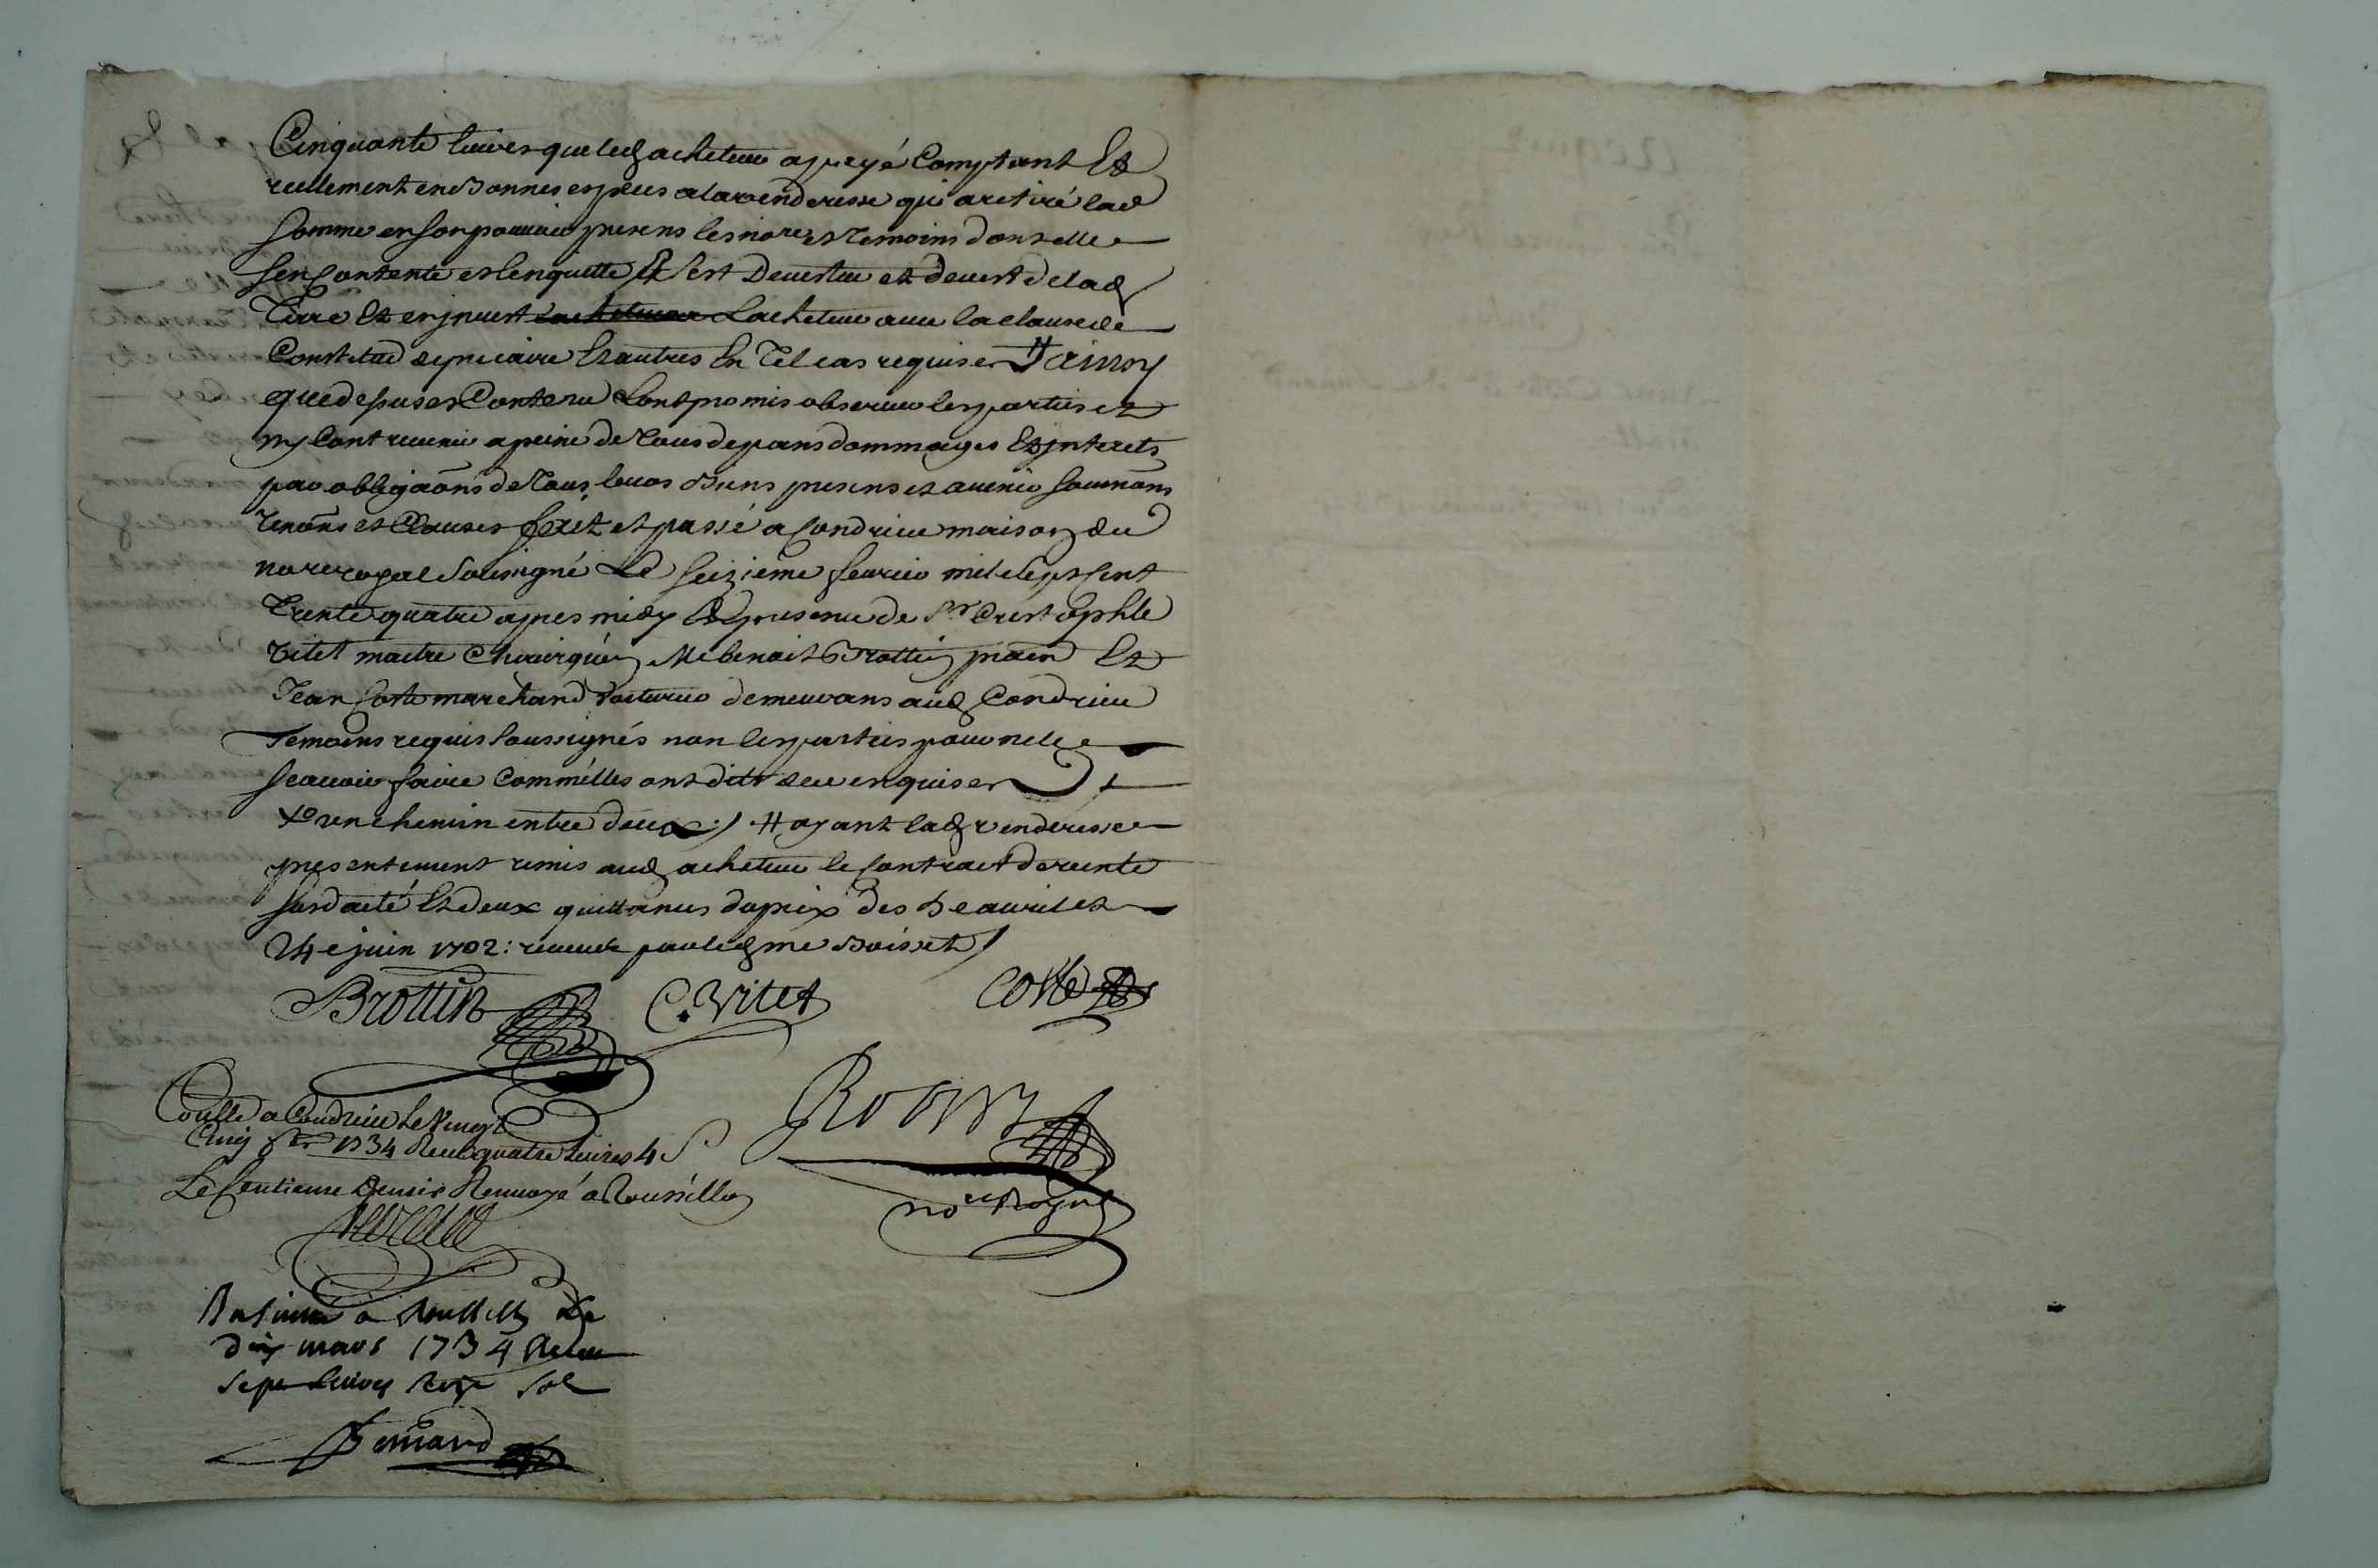 Cinquante livres que led acheteur a payé Comptant Et
reellement en Bonnes especes a la venderesse qui a retiré lad
Somme en son pouvoir presens les nore et temoins dont elle
sen Contente et lenquitte Et sest Devestue et devest de lad
Terre Et en jnvest lacheteur Lacheteur avec la clause de
Constitud de precaire Et autres En Tel cas requises # Ainsy
que dessus et Contenu Lont promis observer les parties et
ny Contrevenir a peine de Tous depans dommages Et jnterets
par obligaõns de Tous leurs Biens presens et avenir soumõns
renõns et Clauses fait et passé a Condrieu maison du
nore royal Soussigné Le Seizieme fevrier mil sept Cent
Trente quatre apres midy En presence de Sr Cristophle
Vitet maitre Chirurgien Me benoit Brottin pratn Et
Jean Coste marchand voiturier demeurans aud Condrieu
Temoins requis soussignés non les parties pour ne le
scavoir faire Comme elles ont dit de ce enquises
Xo un chemin entre deux :/ # ayant lad venderesse
presentement remis aud acheteur le Contract de vente
susdaté Et deux quittances du prix des avril et
24e juin 1702: receues par led me Boisset /
Brottin C. Vitet Coste
Conllé a Condrieu Le vingt
Cinq 1734 Receu quatre Livres 4 S
Le Centieme denier Renvoyé a Roussillon
no re Royal
Insinué à Roussillon Le
dix mars 1734 Receu
Sept Livres Sol
Bernard